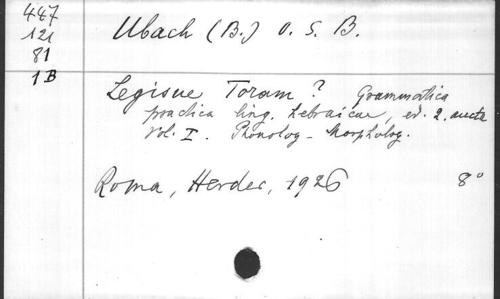 447
121
81
1B
Ubach (B.) O. S. B.
Legisne Toram? Grammatica
practica ling. hebraicae, ed. 2. aucta
Vol. I. Phonolog - Morpholog.
Roma, Herder, 1926 8°